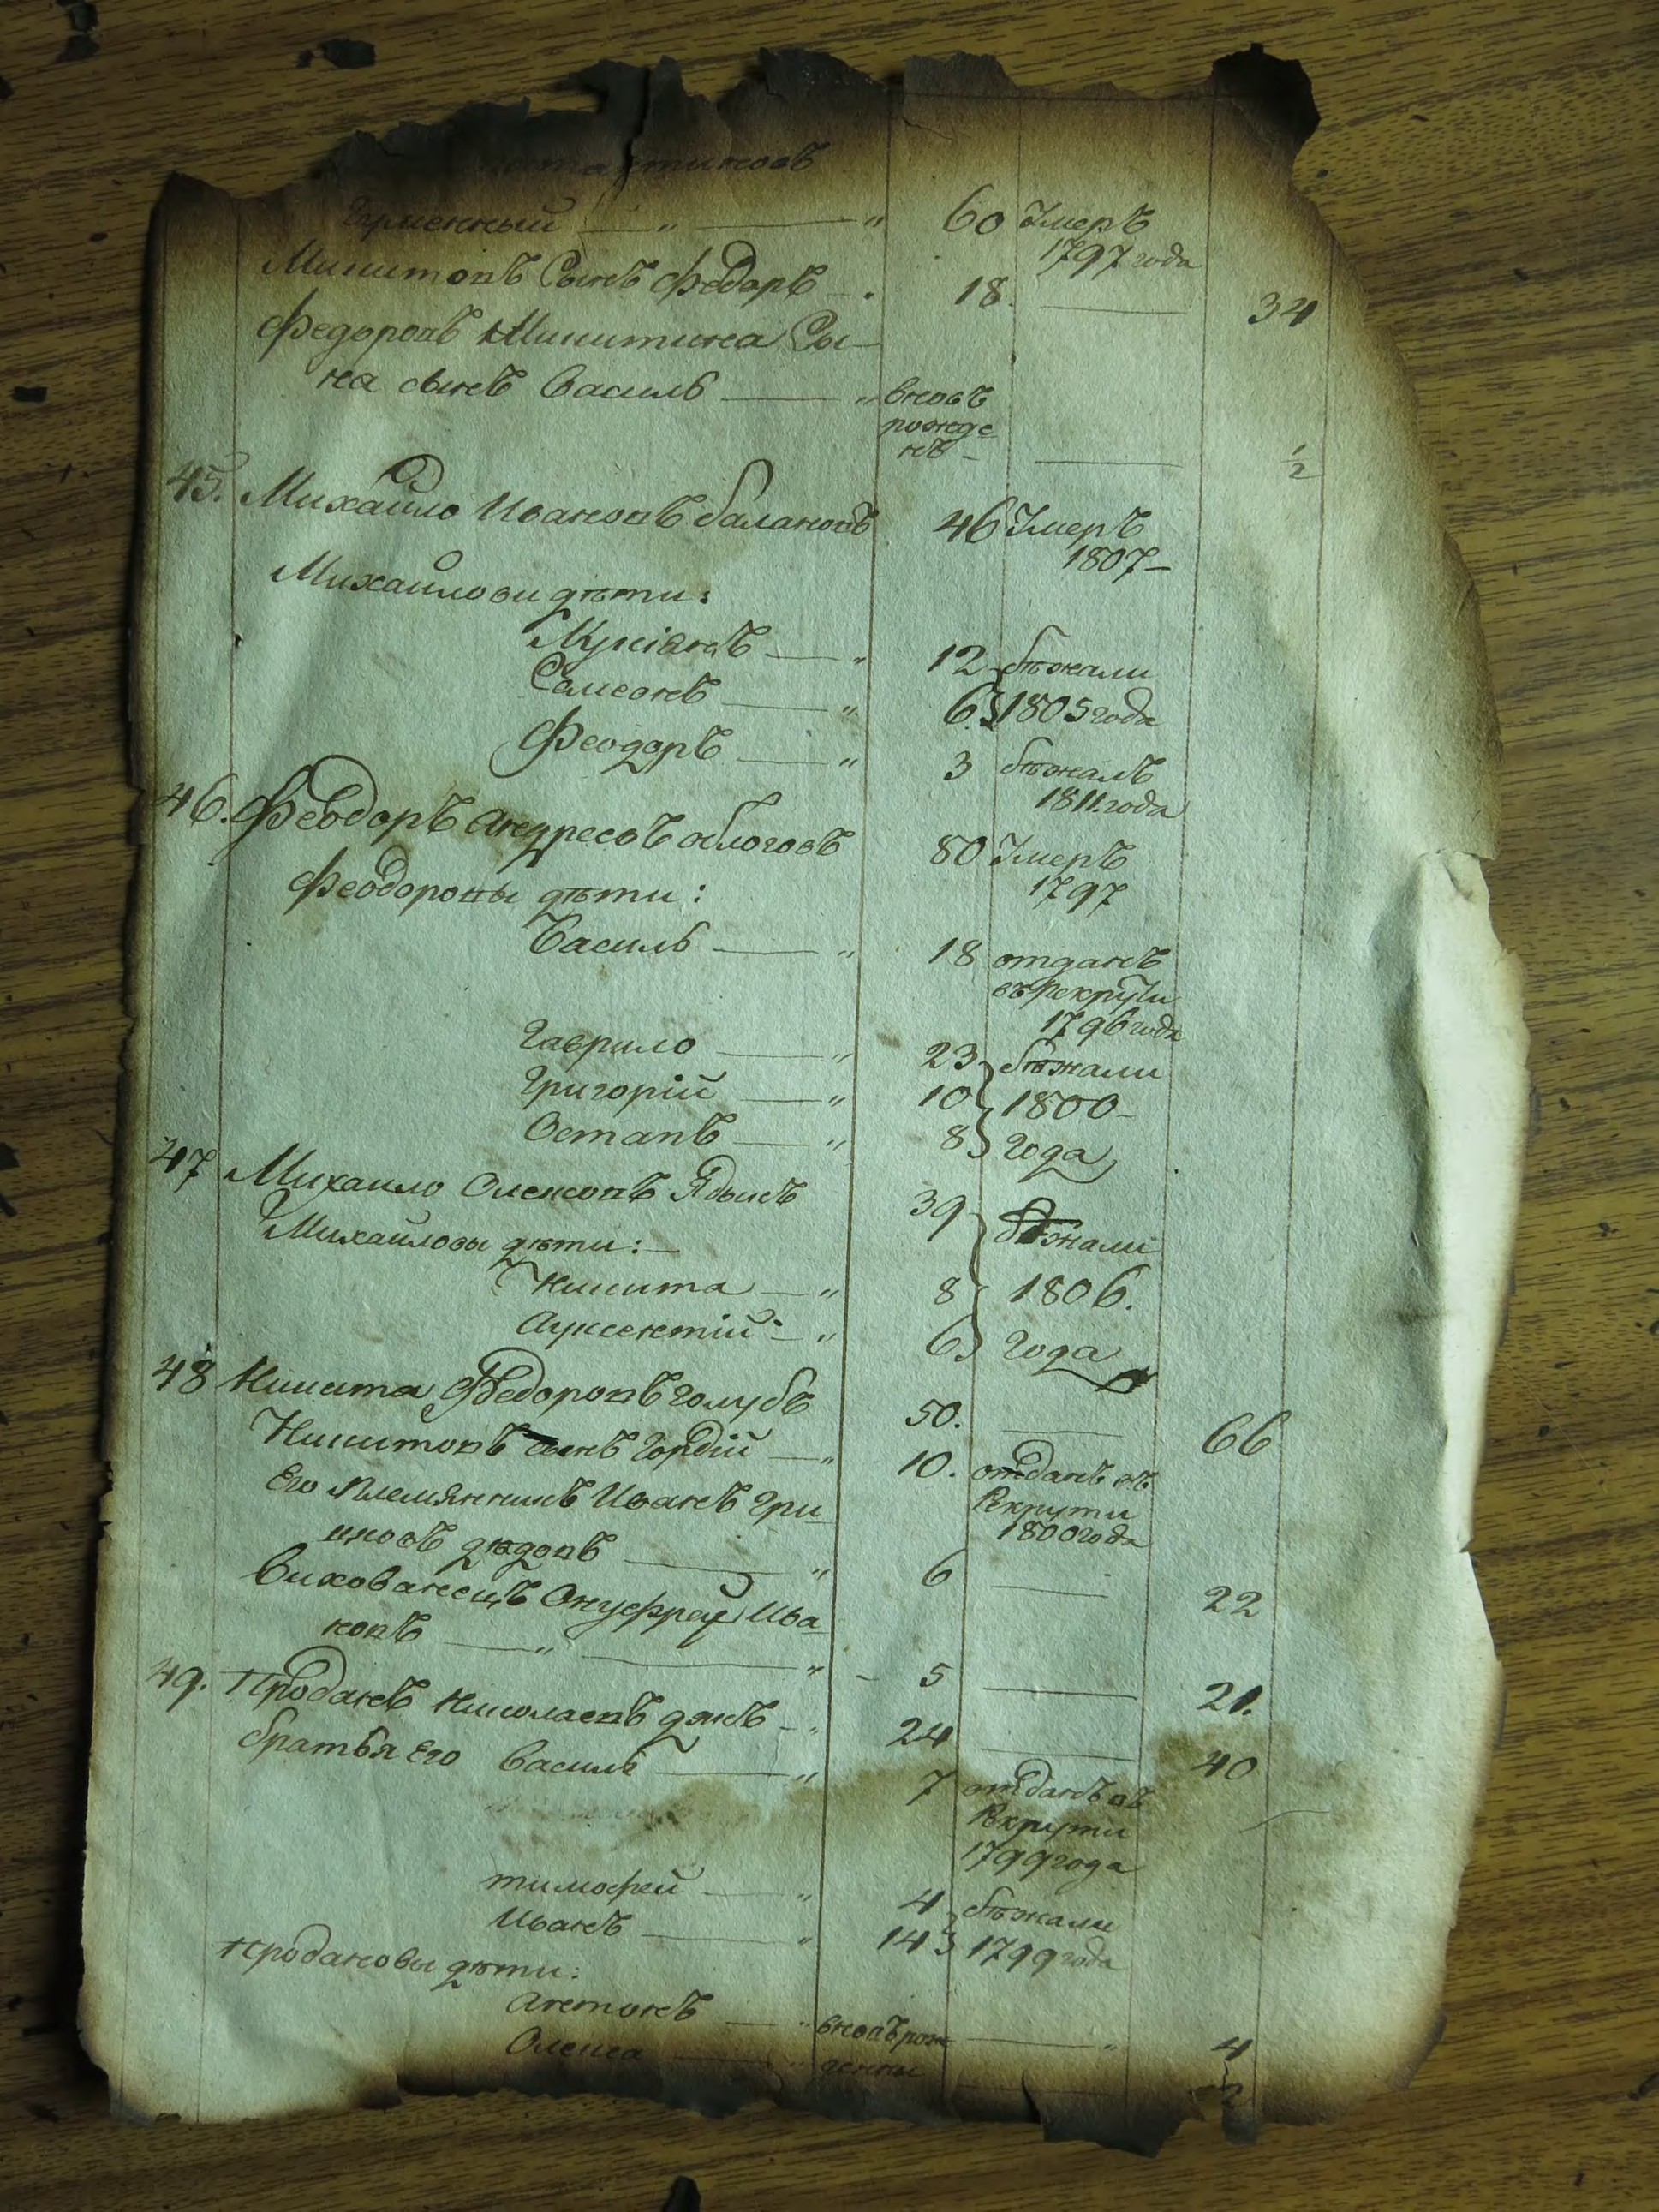 Гуменный — " — " 60 Умеръ
1797 года
Микитовъ Сынъ Федоръ — " 18. — 34
Федоровъ Микитина Сы-
на сынъ Василь — " вновъ
рожде
нъ — — 1/2
45. Михайло Ивановъ балановъ 46 Умеръ
1807 —
Михайлови дѣти:
Лукіянъ — " 12 бѣжали
Самсонъ — " 6 1805 года
Феодоръ — " 3 бѣжалъ
1811. года
46. Феодоръ Андреевъ облоговъ 80 Умеръ
1797
Феодоровы дѣти:
Василь — " 18 отданъ
въ Рекрути
1796 года
Гаврило — " 23 бѣжали
Григорій — " 10 1800 —
Остапъ — " 8 года
47 Михаило Олексовъ 39 бѣжали
Михайловы дѣти: —
Никита — " 8 1806.
Ауксентій — " 6 года
48 Никита Федоровъ голубъ 50. — 66
Никитовъ сынъ Гордій — " 10. отданъ въ
Рекрути
1800 года
Его Племянникъ Иванъ Гри
цковъ дѣдовъ — " 6 — 22
Вихованецъ Онуфрай Ива
новъ — " — " 5 — 21.
49. Проданъ Николаевъ — " 24 — 40
братья Его Василь — " 7 отданъ въ
Рекрути
1799 года
тимофей — " 4 бѣжали
Иванъ — " 14 1799 года
Продановы дѣти:
Антонъ — " вновърож — " 4
Олекса — " денны — 2